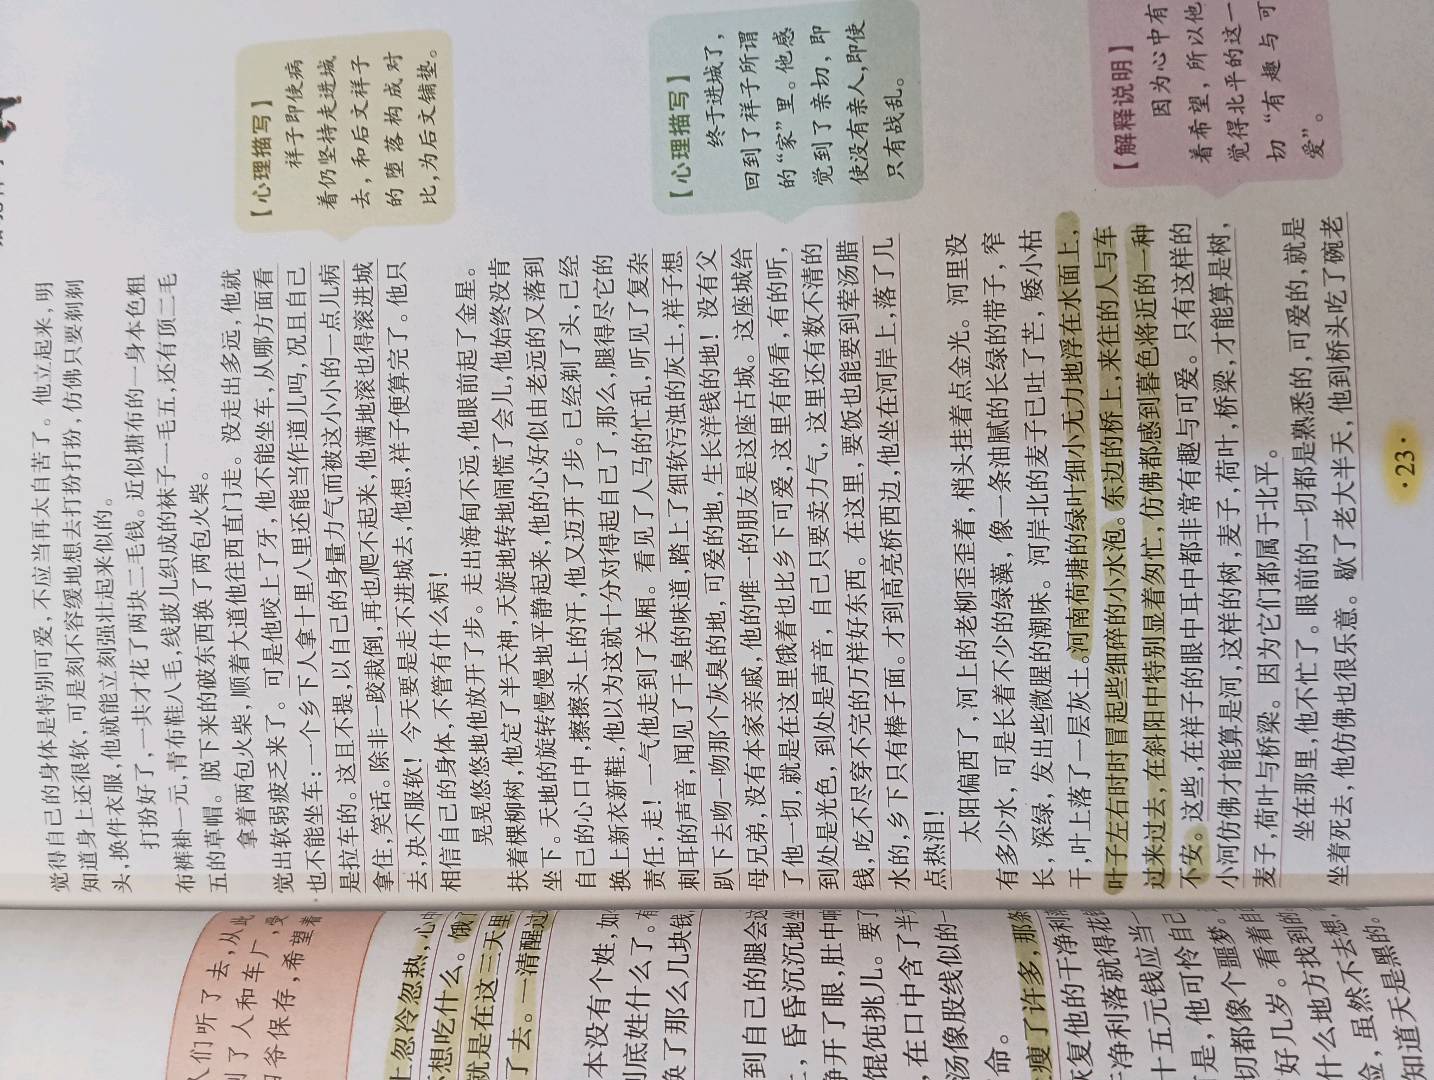 觉得自己的身体是特别可爱，不应当再太自苦了。他立起来，明
知道身上还很软，可是刻不容缓地想去打扮打扮，仿佛只要剃剃
头，换件衣服，他就能立刻强壮起来似的。
打扮好了，一共才花了两块二毛钱。近似搪布的一身本色粗
布裤褂一元，青布鞋八毛，线披儿织成的袜子一毛五，还有顶二毛
五的草帽。脱下来的破东西换了两包火柴。
拿着两包火柴，顺着大道他往西直门走。没走出多远，他就
觉出软弱疲乏来了。可是他咬上了牙，他不能坐车，从哪方面看
也不能坐车：一个乡下人拿十里八里还能当作道儿吗，况且自己
是拉车的。这且不提，以自己的身量力气而被这小小的一点儿病
拿住，笑话。除非一跤栽倒，再也爬不起来，他满地滚也得滚进城
去，决不服软！今天要是走不进城去，他想，祥子便算完了。他只
相信自己的身体，不管有什么病！
晃晃悠悠地他放开了步。走出海甸不远，他眼前起了金星。
扶着棵柳树，他定了半天神，天旋地转地闹慌了会儿，他始终没肯
坐下。天地的旋转慢慢地平静起来，他的心好似由老远的又落到
自己的心口中，擦擦头上的汗，他又迈开了步。已经剃了头，已经
换上新衣新鞋，他以为这就十分对得起自己了，那么，腿得尽它的
责任，走！一气他走到了关厢。看见了人马的忙乱，听见了复杂
刺耳的声音，闻见了干臭的味道，踏上了细软污浊的灰土，祥子想
趴下去吻一吻那个灰臭的地，可爱的地，生长洋钱的地！没有父
母兄弟，没有本家亲戚，他的唯一的朋友是这座古城。这座城给
了他一切，就是在这里饿着也比乡下可爱，这里有的看，有的听，
到处是光色，到处是声音，自己只要卖力气，这里还有数不清的
钱，吃不尽穿不完的万样好东西。在这里，要饭也能要到荤汤腊
水的，乡下只有棒子面。才到高亮桥西边，他坐在河岸上，落了几
点热泪！
太阳偏西了，河上的老柳歪歪着，梢头挂着点金光。河里没
有多少水，可是长着不少的绿藻，像一条油腻的长绿的带子，窄
长，深绿，发出些微腥的潮味。河岸北的麦子已吐了芒，矮小枯
干，叶上落了一层灰土。河南荷塘的绿叶细小无力地浮在水面上，
叶子左右时时冒起些细碎的小水泡。东边的桥上，来往的人与车
过来过去，在斜阳中特别显着匆忙，仿佛都感到暮色将近的一种
不安。这些，在祥子的眼中耳中都非常有趣与可爱。只有这样的
小河仿佛才能算是河，这样的树，麦子，荷叶，桥梁，才能算是树，
麦子，荷叶与桥梁。因为它们都属于北平。
坐在那里，他不忙了。眼前的一切都是熟悉的，可爱的，就是
坐着死去，他仿佛也很乐意。歇了老大半天，他到桥头吃了碗老
【心理描写】
祥子即使病
着仍坚持走进城
去，和后文祥子
的堕落构成对
比，为后文铺垫。
【心理描写】
终于进城了，
回到了祥子所谓
的“家”里。他感
觉到了亲切，即
使没有亲人，即使
只有战乱。
【解释说明】
因为心中有
着希望，所以他
觉得北平的这一
切“有趣与可
爱”。
·23·
人们听了去，从此
了人和车厂，
爷保存，希望着
上忽冷忽热，心
想吃什么。饿
就是在这三天里
了去。一清醒过
本没有个姓，如
到底姓什么了。有
换了那么几块钱，
到自己的腿会这
，昏昏沉沉地坐
睁开了眼，肚中响
馄饨挑儿。要了
，在口中含了半
汤像股线似的一
命。
瘦了许多，那条
恢复他的干净利
干净利落就得花钱
十五元钱应当一
是，他可怜自己
切都像个噩梦。
好几岁。看着自
什么地方找到的
险，虽然不去想
知道天是黑的。